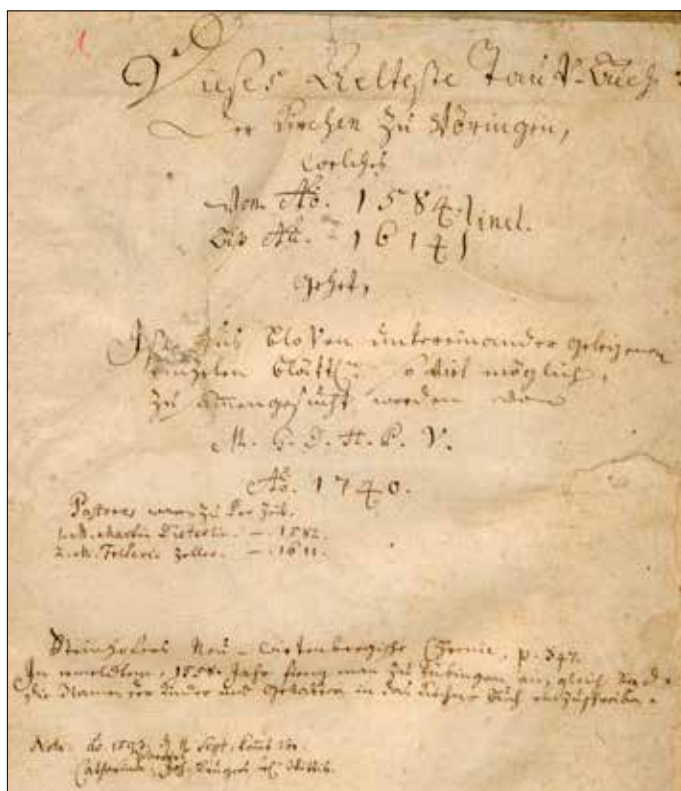 1
Dieses Aelteste Tauf-Buch
Der Kirchen zu Vöringen,
welches
Von Ao. 1584.
biß Ao. 1614 } incl.
gehet,
Ist aus bloßen untereinander gelegenen
einzelen Blättern so viel möglich,
zusammengesucht worden von
M. G. D. H. P. V.
Ao. 1740.
Pastores waren zu der Zeit.
1. M. Martin Dieterlin. — 1582.
2. M. Zeller. — 1611.
Steinhofers Neu-Würtenbergische Chronic, p. 347.
In 1558. Jahr fieng man zu Tübingen an,
die Namen der Kinder und Gevattern in das Kirchen Buch einzuschreiben.
Nota. Ao 1593. Sept.
Catharina Joh.